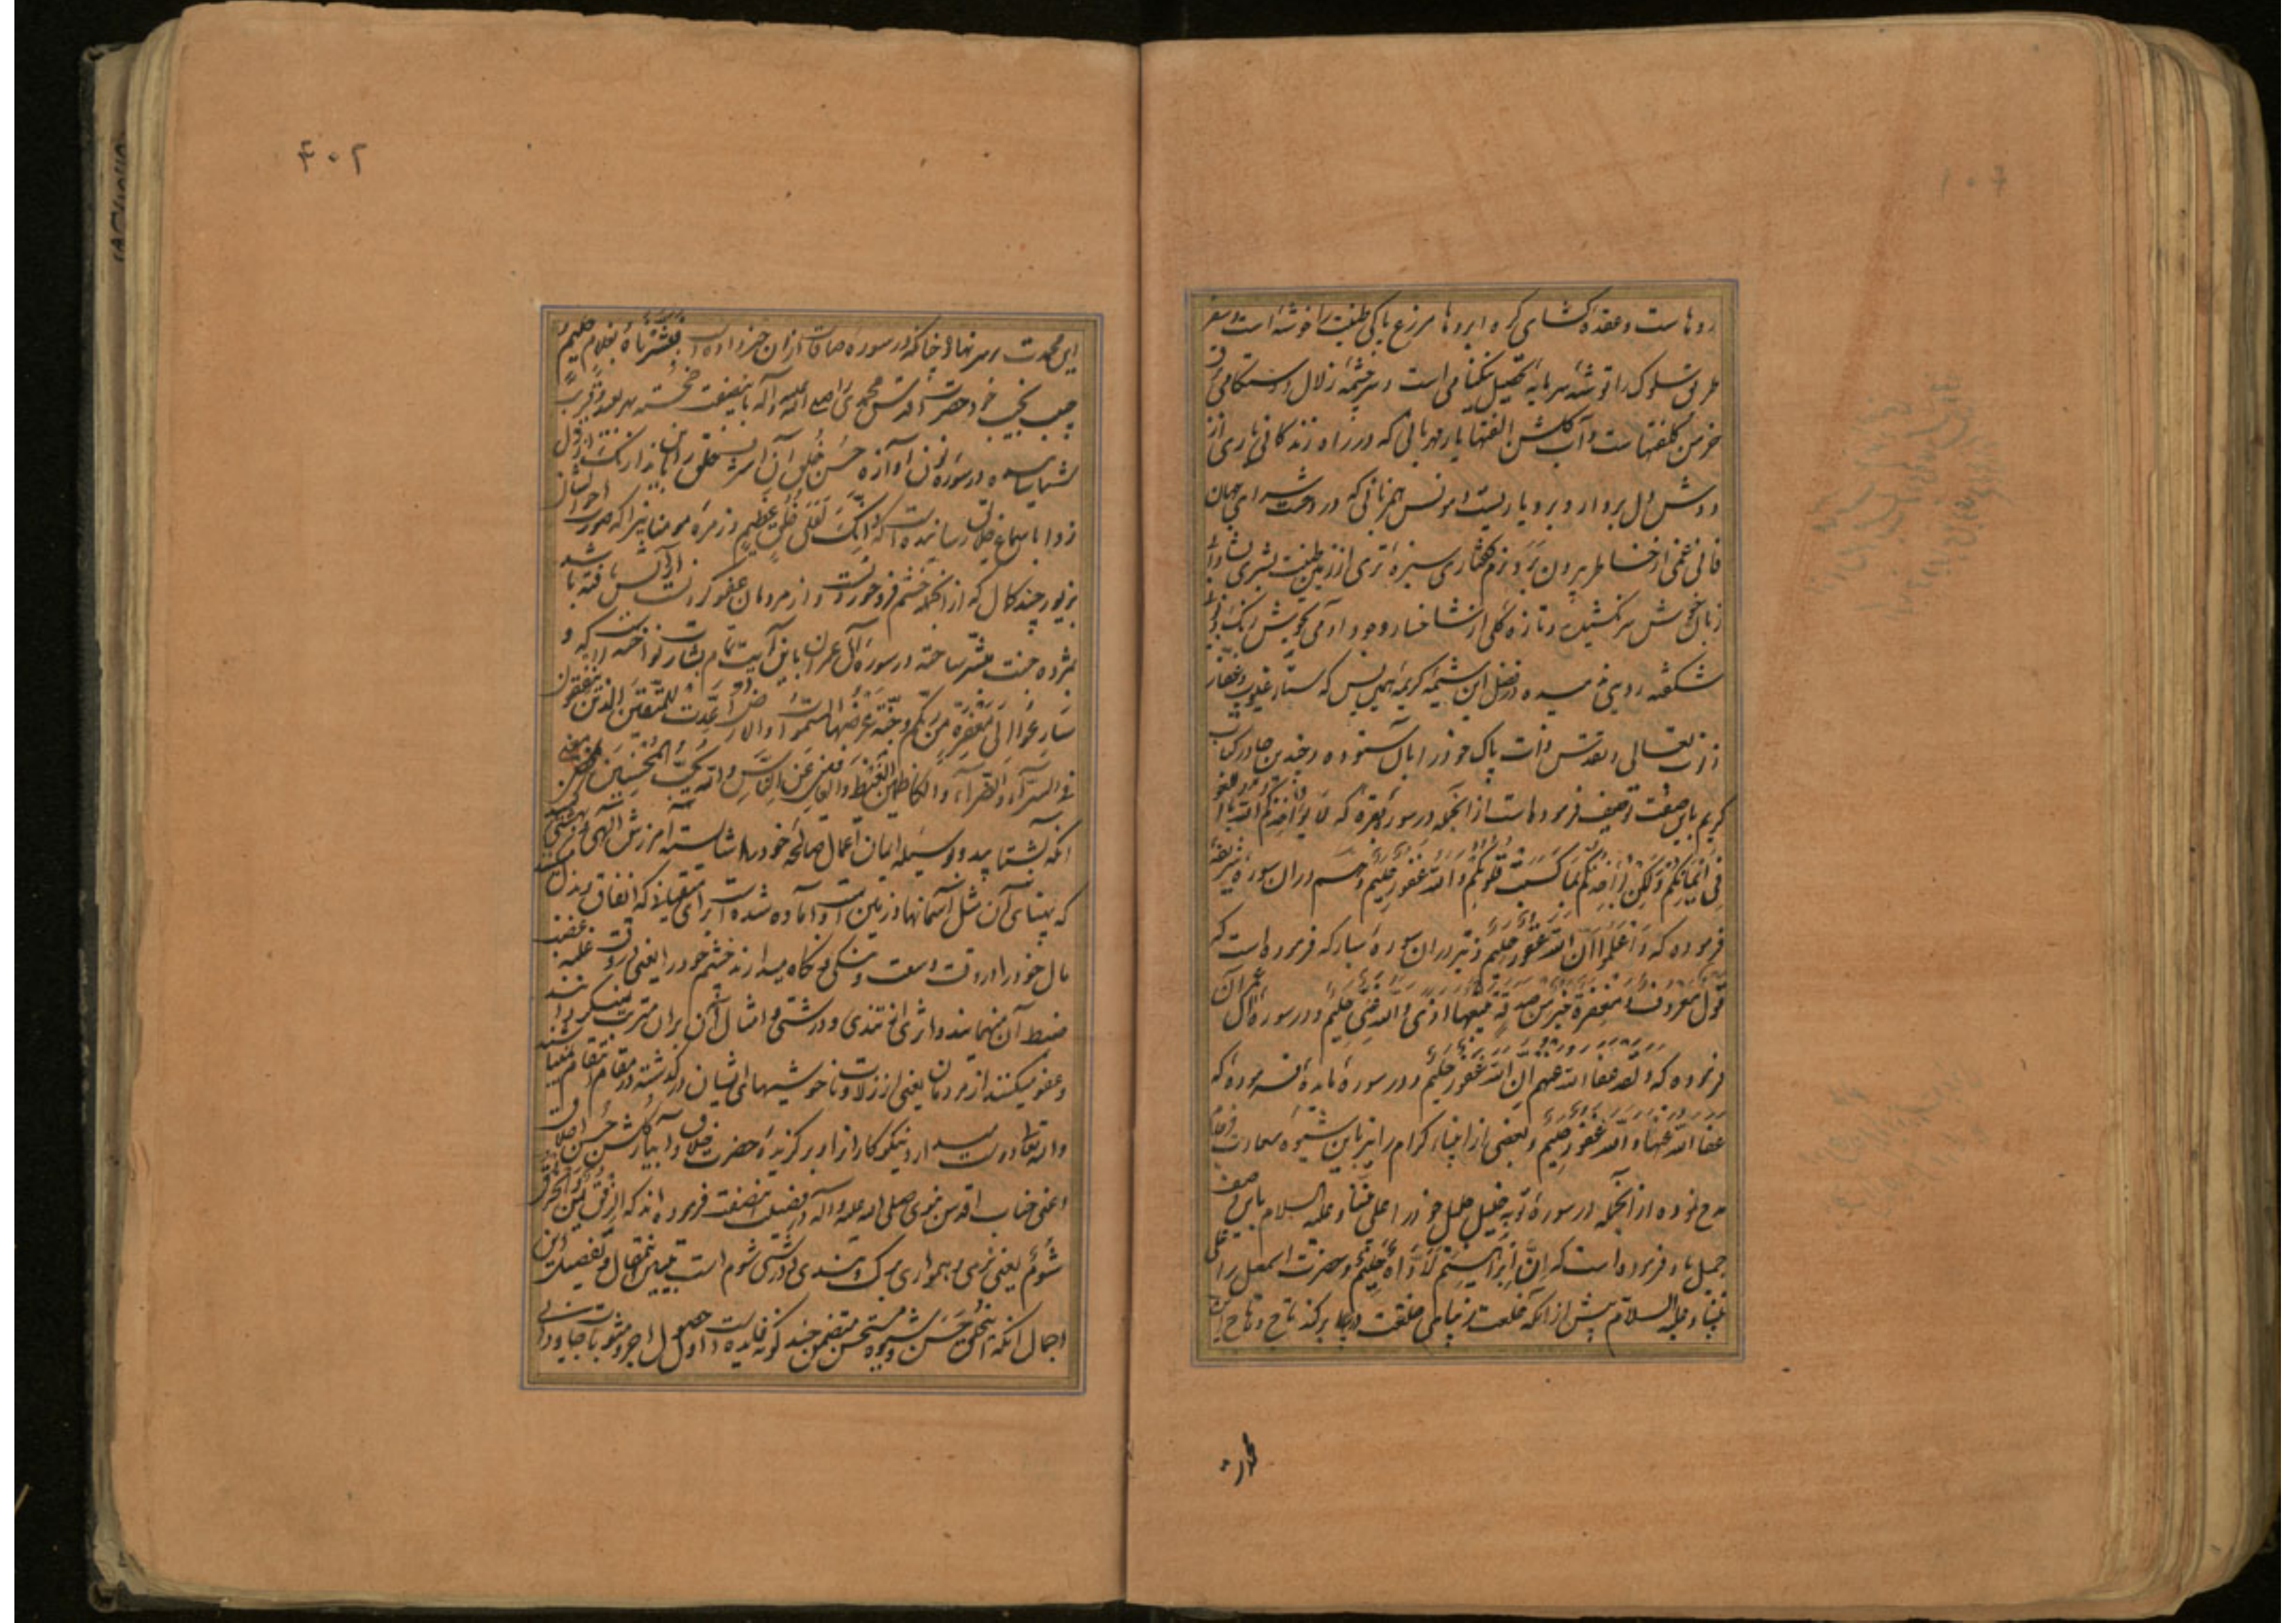 روهاست و عقده کشای کره ابروها مزرع پاکی طینت را خوشه است و سفر
طریق سلوک را توشه سرمایه تحصیل نیکنامی است و سرچشمه زلال دوستکامی برق
خرمن کلفتهاست و آب کلشن الفتها یار مهربانی که در راه زندکانی باری از
دوش دل بردارد بردباریست و مونس همزبانی که در وحشت سرای جهان
فانی غمی از خاطر بیرون برد نرم کفتاری سبزه تری از زمین طینت بشری
زبان خوش سر نکشیده و تازه کلی از شاخسار وجود آدمی
شکفته رویی ندمیده در فضل این شیمه کریمه همین بس که ستار عیوب و غفار
ذنوب تعالی و تقدس ذات پاک خود را بآن ستوده و چندین جا در کتاب
کریم باین صفت توصیف فرموده است از انجمله در سوره بقره که لا یؤاخذکم الله باللغو
فی ایمانکم ولکن یؤاخذکم بما کسبت قلوبکم والله غفور حلیم و هم در ان سوره شریفه
فرموده که واعلموا ان الله غفور حلیم و نیز در ان سوره مبارکه فرموده است که
قول معروف و مغفرة خیر من صدقة یتبعها اذی والله غنی حلیم و در سوره آل عمران
فرموده که ولقد عفا الله عنهم ان الله غفور حلیم و در سوره مایده فرموده که
عفا الله عنها والله غفور حلیم و بعضی از انبیاء کرام را نیز باین شیوه سعادت فرجام
مدح نموده از انجمله در سوره توبه خلیل جلیل خود را علی نبینا و علیه السلام باین وصف
جمیل یاد فرموده است که ان ابراهیم لاواه حلیم و حضرت اسمعیل را علی
نبینا و علیه السلام پیش از انکه خلعت زیبای خلقت در بر کند تاج وهاج این
محمدت
۴۰۲
این محمدت بر سر نهاده چنانکه در سوره صافات از ان خبر داده است فبشرناه بغلام حلیم و
حبیب نجیب خود حضرت اقدس محمدی را صلی الله علیه وآله باین صفت خجسته بهر بعید و قریب
شناسانیده و در سوره نون آوازه حسن خلق آن اشرف خلق را
زدا باسماع خلایق رسانیده است که انک لعلی خلق عظیم و زمره مومنانیرا که صورت احوالشان
بزیور چند کمال که از انجمله خشم فرو خوردنست و از مردمان عفو کردنست آرایش یافته باشد
بمژده جنت مبشر ساخته و در سوره آل عمران باین آیت تمام بشارت نواخته است که و
سارعوا الی مغفرة من ربکم وجنة عرضها السموات والارض اعدت للمتقین الذین ینفقون
فی السراء والضراء والکاظمین الغیظ والعافین عن الناس والله یحب المحسنین یعنی
انکه بشتابید و بوسیله ایمان و اعمال صالحه خود را شایسته آمرزش الهی و بهشتی
که پهنای آن مثل آسمانها و زمین است و آماده شده است برای متقیان که انفاق و بذل میکنند
مال خود را در وقت وسعت و تنکی و نکاه میدارند خشم خود را یعنی در وقت غلبه غضب
ضبط آن مینمایند و اثری از تندی و درشتی و امثال آن بران مترتب نمیکردانند
و عفو میکنند از مردمان یعنی از زلات و ناخوشیهای ایشان درکذشته در مقام انتقام نمیباشند
والله تعالی دوست میدارد نیکوکاران را و برکزیده حضرت خلاق و آبیار کلشن حسن اخلاق
اعنی جناب اقدس نبوی صلی الله علیه وآله در فضیلت این صفت فرموده اند که الرفق یمن والخرق
شوم یعنی نرمی و همواری مبارک و تندی و درشتی شوم است تبیین این مقال و تفصیل این
اجمال انکه این خلق حسن و شیوه مستحسن متضمن چند کونه فایده است اول حصول اجر و مثوبات جاودانی